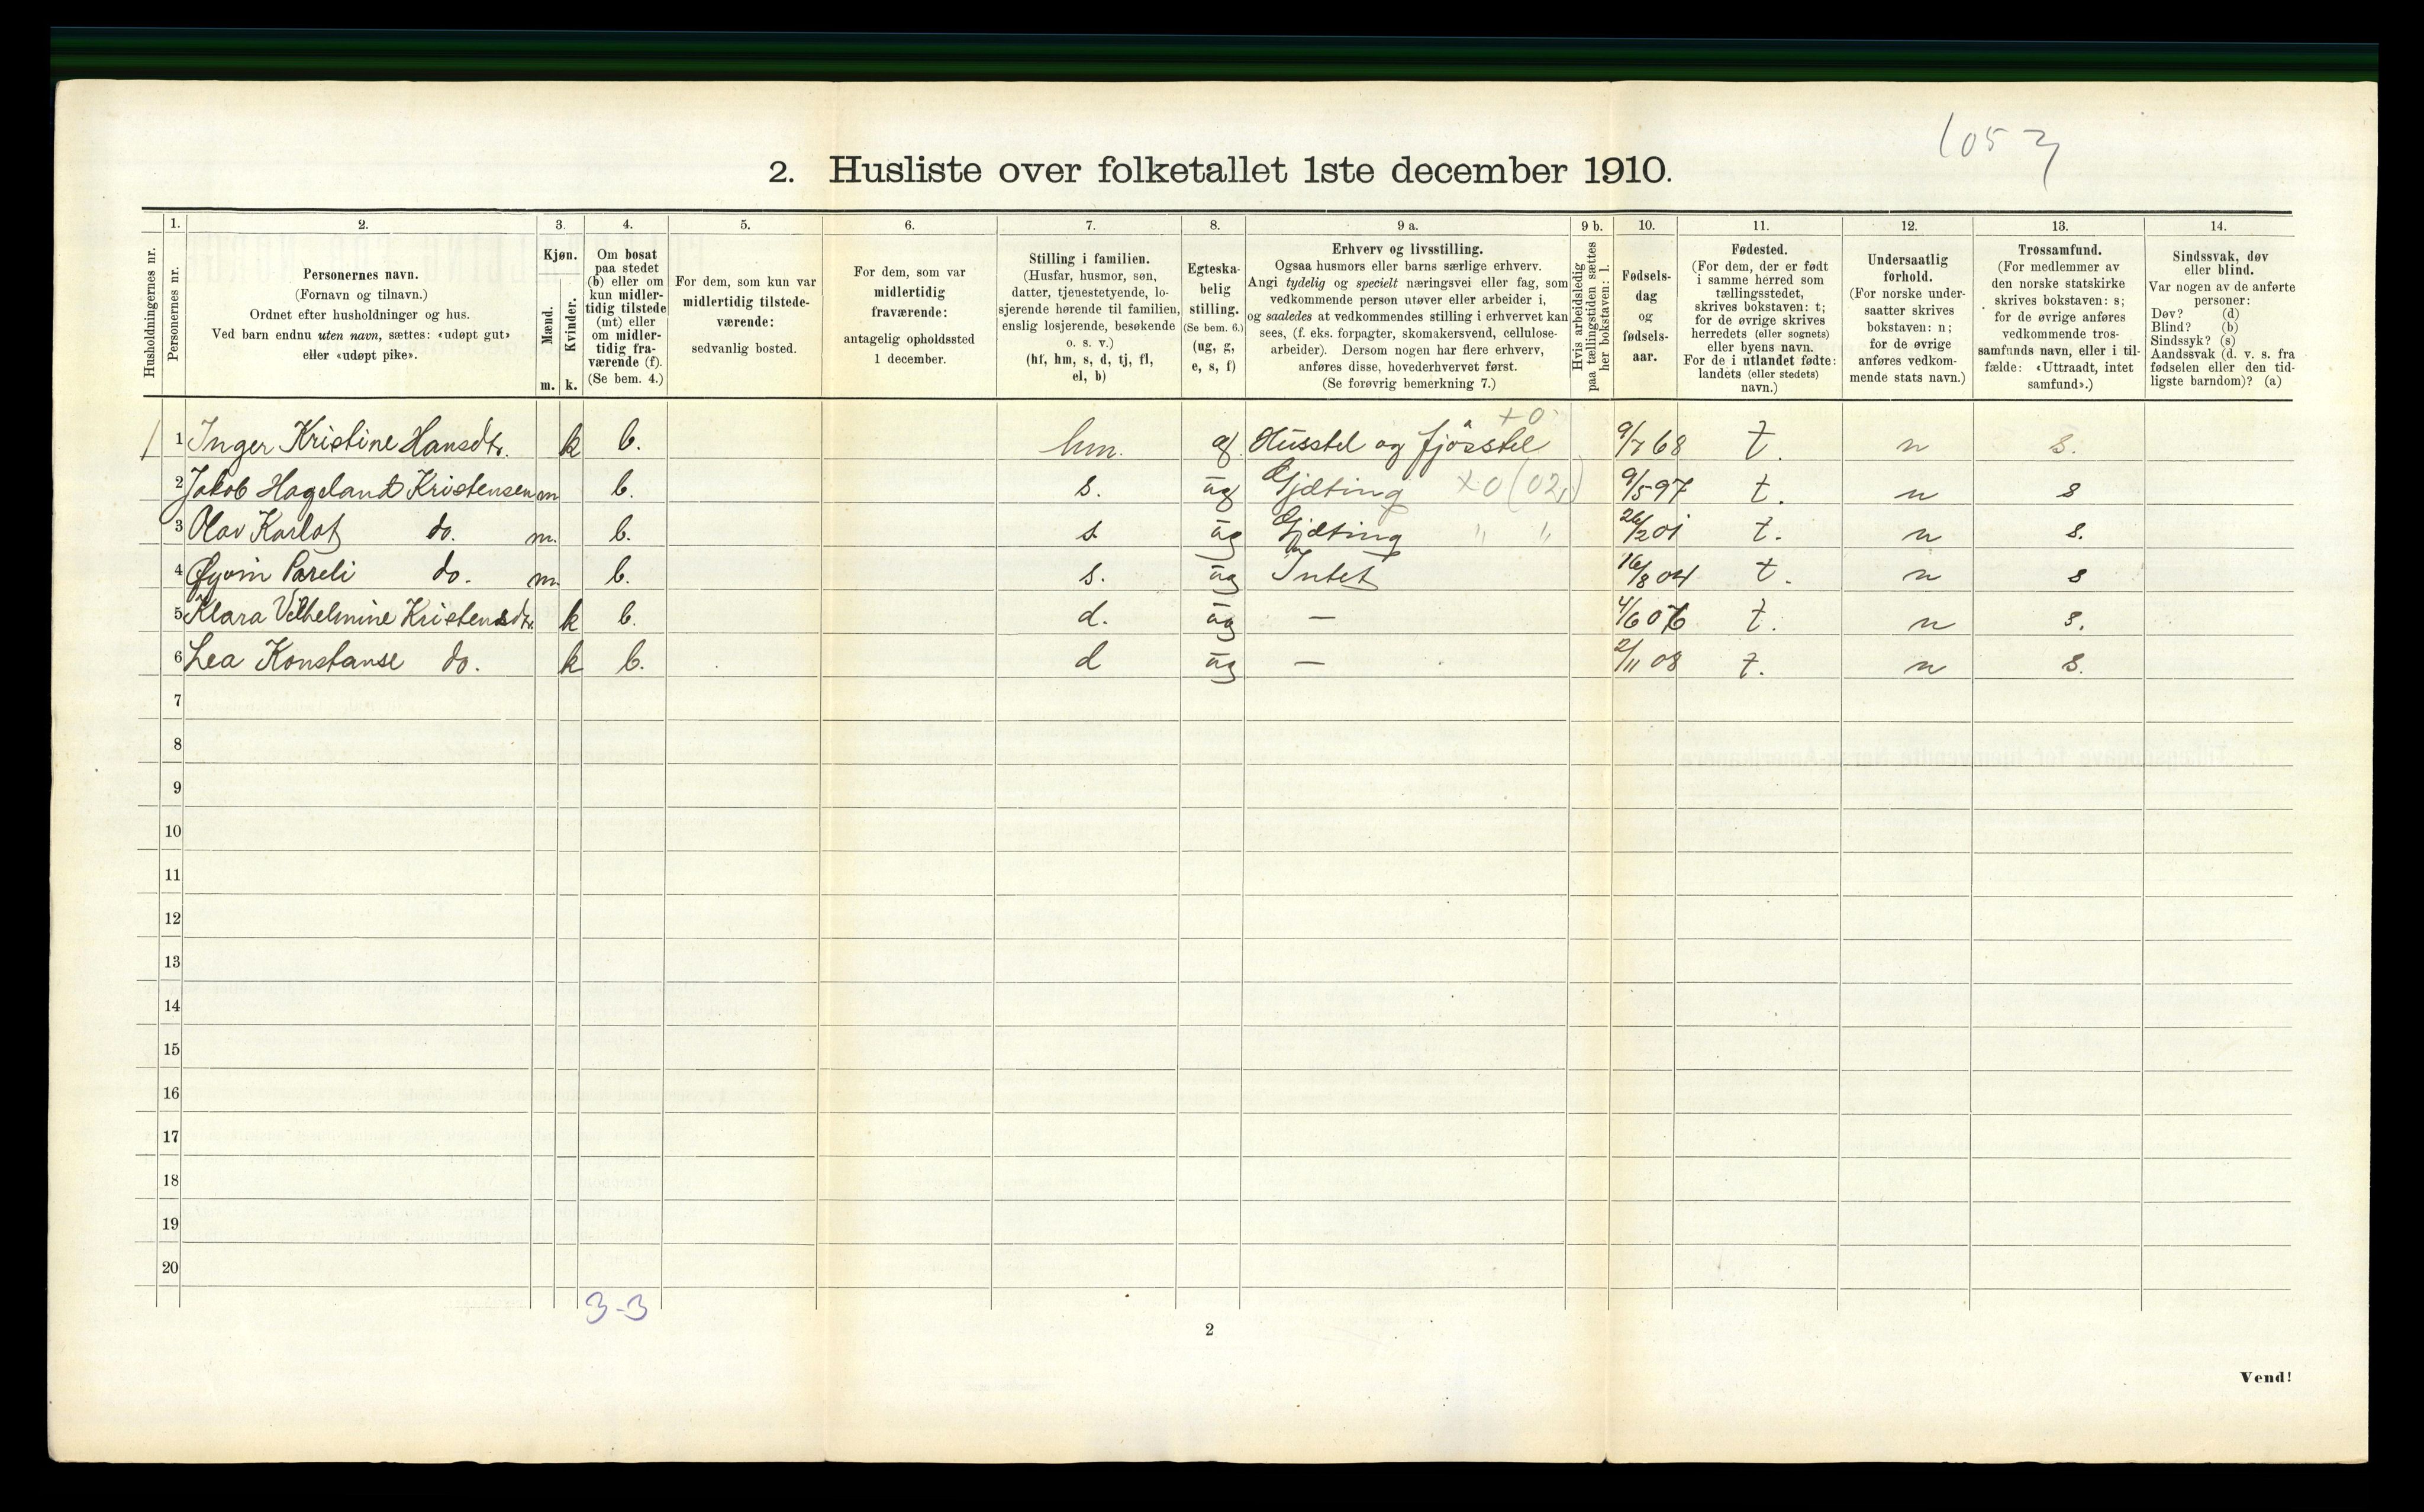 1057
2. Husliste over folketallet 1ste december 1910.
1. 2. 3. 4. 5. 6. 7. 8. 9 a. 9 b. 10. 11. 12. 13. 14.
Husholdningernes nr.
Personernes nr.
Personernes navn.
(Fornavn og tilnavn.)
Ordnet efter husholdninger og hus.
Ved barn endnu uten navn, sættes: «udøpt gut»
eller «udøpt pike».
Kjøn.
Mænd.
Kvinder.
m. k.
Om bosat
paa stedet
(b) eller om
kun midler-
tidig tilstede
(mt) eller
om midler-
tidig fra-
værende (f).
(Se bem. 4.)
For dem, som kun var
midlertidig tilstede-
værende:
sedvanlig bosted.
For dem, som var
midlertidig
fraværende:
antagelig opholdssted
1 december.
Stilling i familien.
(Husfar, husmor, søn,
datter, tjenestetyende, lo-
sjerende hørende til familien,
enslig losjerende, besøkende
o. s. v.)
(hf, hm, s, d, tj, fl,
el, b)
Egteska-
belig
stilling.
(Se bem. 6.)
(ug, g,
e, s, f)
Erhverv og livsstilling.
Ogsaa husmors eller barns særlige erhverv.
Angi tydelig og specielt næringsvei eller fag, som
vedkommende person utøver eller arbeider i,
og saaledes at vedkommendes stilling i erhvervet kan
sees, (f. eks. forpagter, skomakersvend, cellulose-
arbeider). Dersom nogen har flere erhverv,
anføres disse, hovederhvervet først.
(Se forøvrig bemerkning 7.)
Hvis arbeidsledig
paa tællingstiden sættes
her bokstaven: l.
Fødsels-
dag
og
fødsels-
aar.
Fødested.
(For dem, der er født
i samme herred som
tællingsstedet,
skrives bokstaven: t;
for de øvrige skrives
herredets (eller sognets)
eller byens navn.
For de i utlandet fødte:
landets (eller stedets)
navn.)
Undersaatlig
forhold.
(For norske under-
saatter skrives
bokstaven: n;
for de øvrige
anføres vedkom-
mende stats navn.)
Trossamfund.
(For medlemmer av
den norske statskirke
skrives bokstaven: s;
for de øvrige anføres
vedkommende tros-
samfunds navn, eller i til-
fælde: «Uttraadt, intet
samfund».)
Sindssvak, døv
eller blind.
Var nogen av de anførte
personer:
Døv? (d)
Blind? (b)
Sindssyk? (s)
Aandssvak (d. v. s. fra
fødselen eller den tid-
ligste barndom)? (a)
+0
1 1 Inger Kristine Hansdtr. k b. hm. g. Husstel og fjøsstel 9/7 68 t. n s.
2 Jakob Hageland Kristensen m b. s. ug Gjæting +0 (02) 9/5 97 t. n s
3 Olav Karlot do. m. b. s ug Gjæting " " 26/2 01 t. n s.
4 Øyvin Pareli do. m. b. s. ug Intet 16/8 04 t. n s
5 Klara Vilhelmine Kristensdtr. k b. d. ug — 4/6 06 t. n s.
6 Lea Konstanse do. k b. d ug — 2/11 08 t. n s.
7
8
9
10
11
12
13
14
15
16
17
18
19
20
3-3
2
Vend!